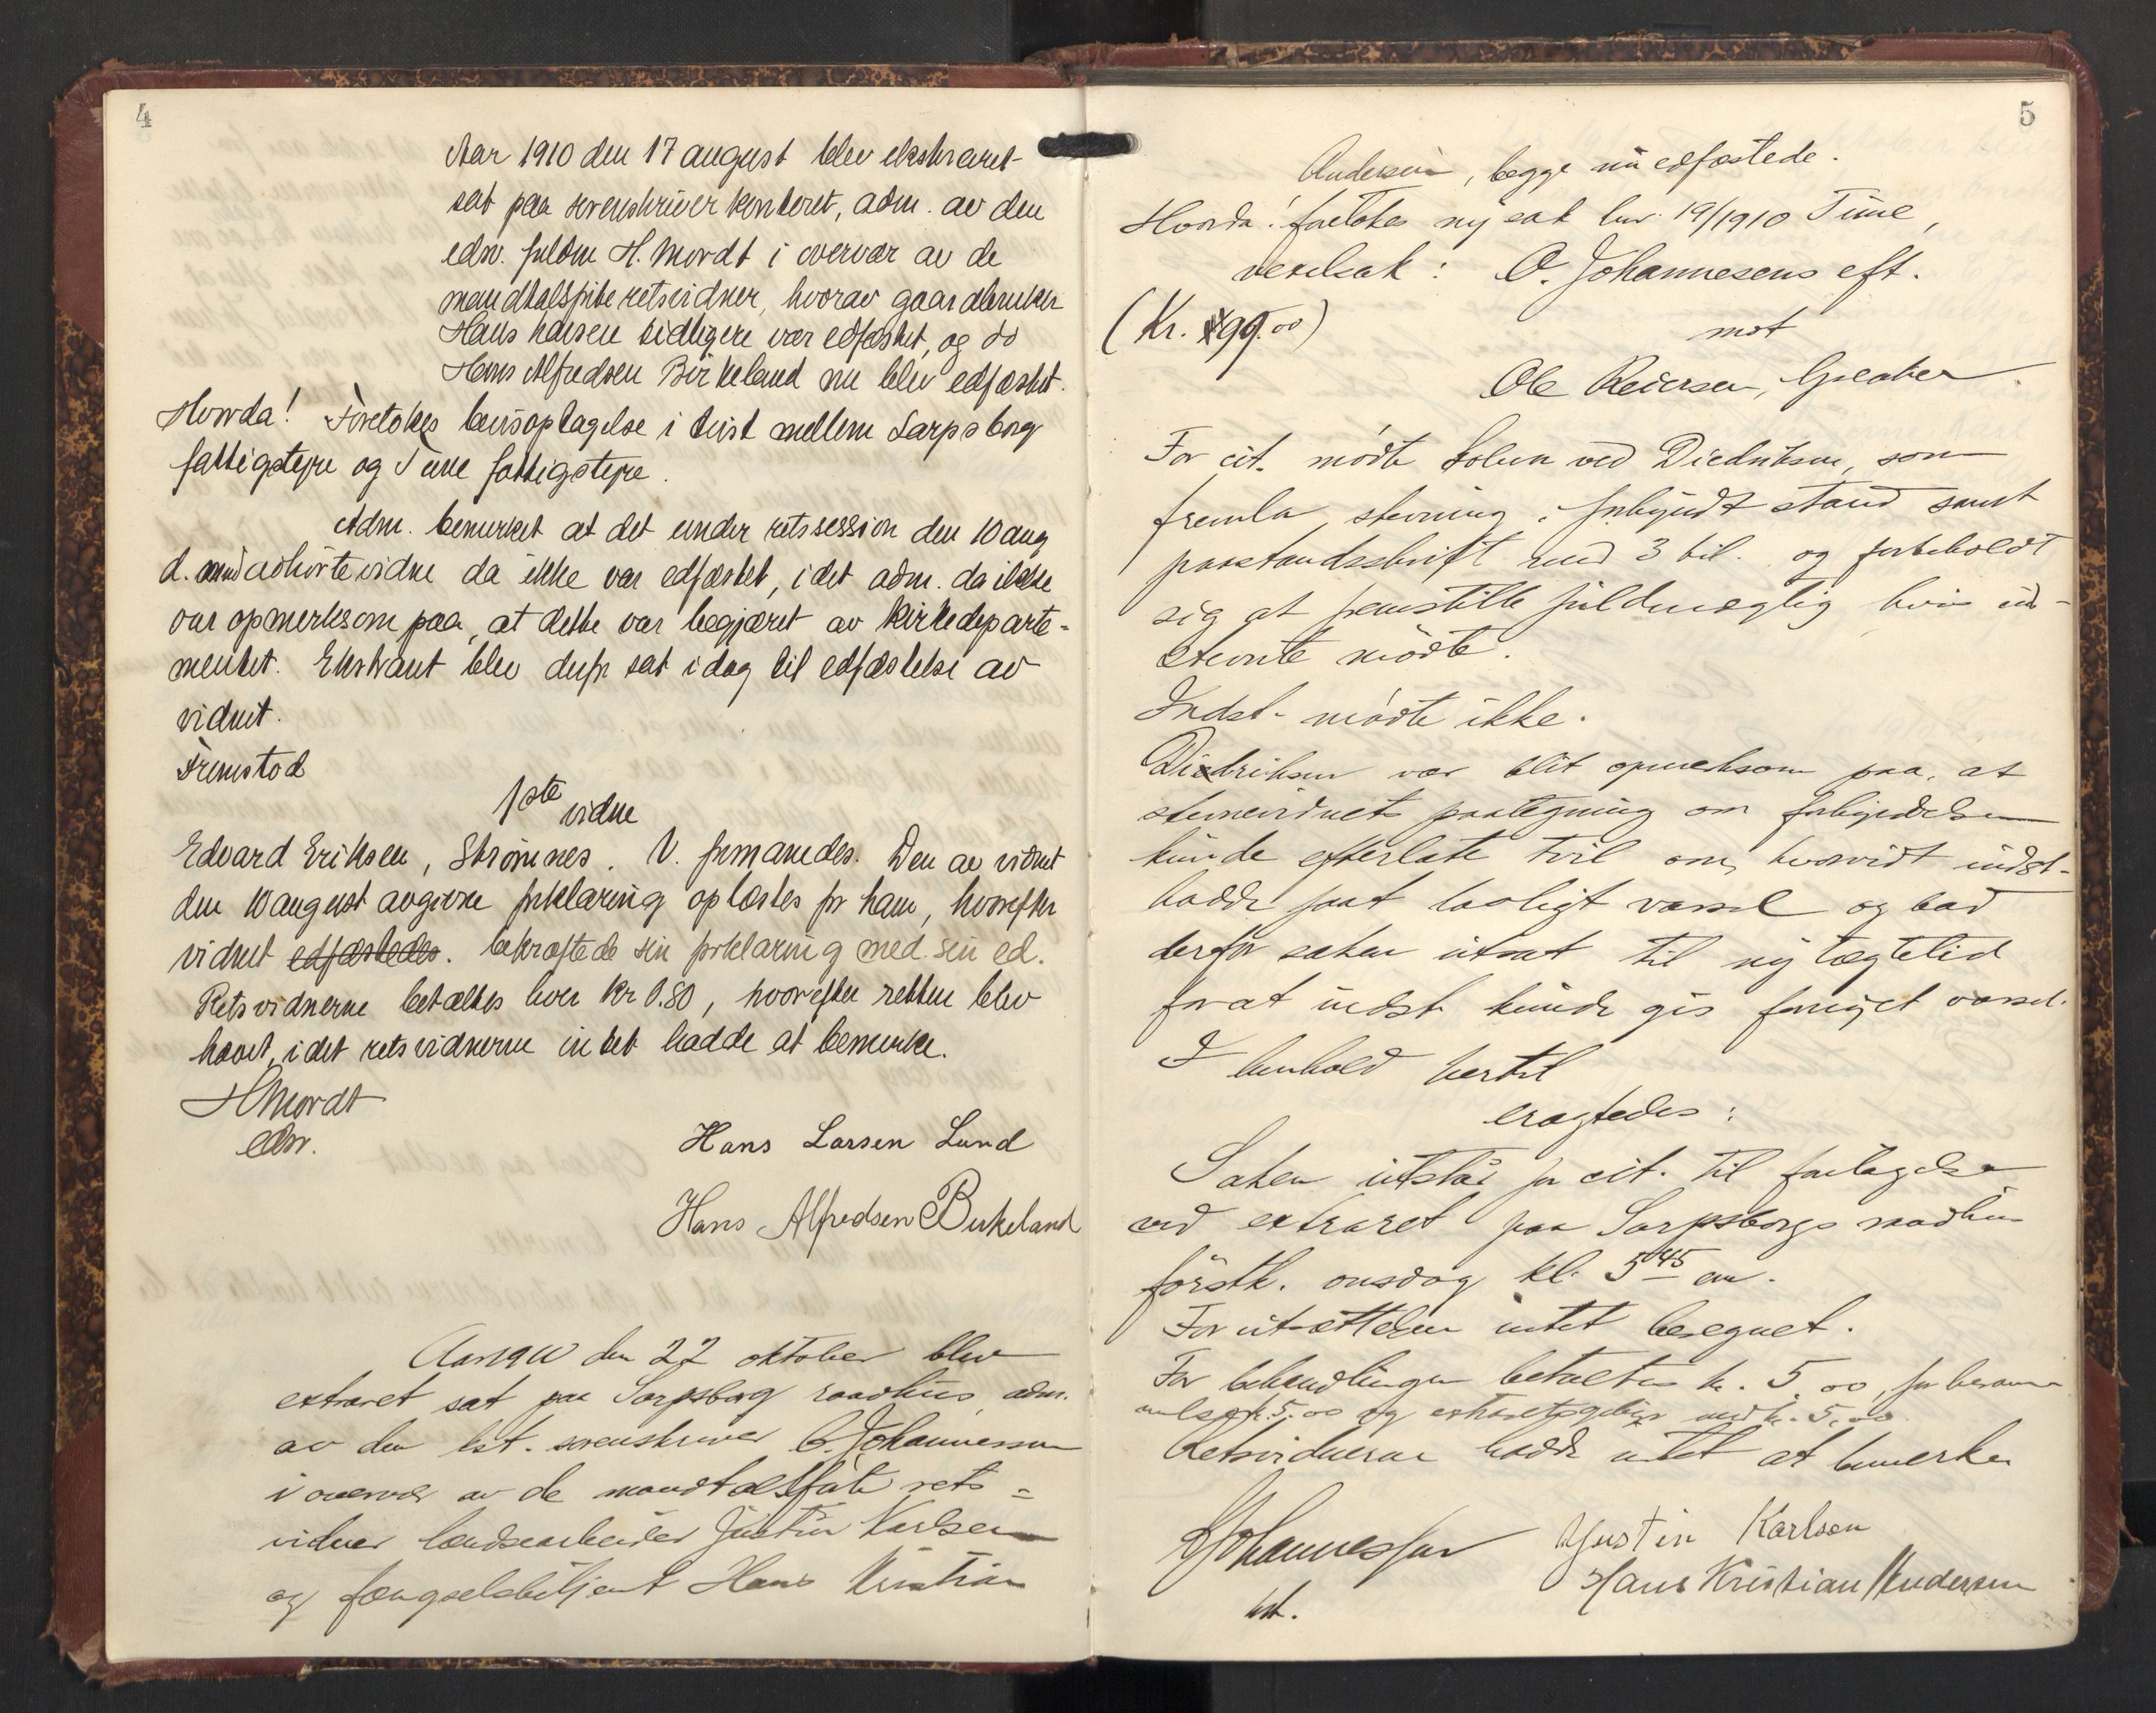 4
Aar 1910 den 17 august blev ekstraret
sat paa sorenskriverkontoret, adm. av den
edsv. fuldm H. Mordt i overvær av de
mandtalsførte retsvidner, hvorav gaardbruker
Hans Larsen tidligere var edfæstet, og do
Hans Alfredsen Birkeland nu blev edfæstet.
Hvorda! Foretokes bevisoptagelse i tvist mellem Sarpsborg
fattigstyre og Tune fattigstyre.
Adm. bemerket at det under retssession den 10 aug
d. mnd avhørte vidne da ikke var edfæstet, idet adm. da ikke
var opmerksom paa, at dette var begjæret av Kirkedeparte-
mentet. Ekstraret blev derfor sat idag til edfæstelse av
vidnet.
Fremstod
1ste vidne
Edvard Eriksen, Strømnes. V. formanedes. Den av vidnet
den 10 august avgivne forklaring oplæstes for ham, hvorefter
vidnet edfæstedes. bekræftede sin forklaring med sin ed.
Retsvidnerne betaltes hver Kr 0.80, hvorefter retten blev
hævet, idet retsvidnerne intet hadde at bemerke.
HMordt
edsv.
Hans Larsen Lund
Hans Alfredsen Birkeland
Aar 1910 den 22 oktober blev
extraret sat paa Sarpsborg raadhus, adm.
av den kst. sorenskriver C. Johannessen
i overvær av de mandtalsførte rets=
vidner landsearbeider Justin Karlsen
og fængselsbetjent Hans Kristian
5
Andersen, begge nu edfæstede.
Hvorda! foretokes ny sak lnr. 19/1910 Tune,
vexelsak: O. Johannesens eft.
(Kr. 99.00)
mot
Ole Reiersen, Greaker.
For cit. mødte Solum ved Diedriksen, som
fremla stevning i forkyndt stand samt
paastandsskrift med 3 bil. og forbeholdt
sig at fremstille fuldmægtig hvis ind-
stevnte mødte.
Indst. mødte ikke.
Diedriksen var blit opmerksom paa, at
stevnevidnets paategning om forkyndelsen
kunde efterlate tvil om, hvorvidt indst.
hadde faat lovligt varsel og bad
derfor saken utsat til ny tægtetid
for at indst. kunde gis fornyet varsel.
I henhold hertil
eragtedes:
Saken utstår for cit. til foretagelse
ved extraret paa Sarpsborgs raadhus
førstk. onsdag kl. 5 45 em.
For utsættelsen intet beregnet.
For behandlingen betaltes kr. 5,00, for beram-
melse kr. 5,00 og extraretsgebyr med kr. 5,00.
Retsvidnerne hadde intet at bemerke
CJohannessen
kst.
Justin Karlsen
Hans Kristian Andersen